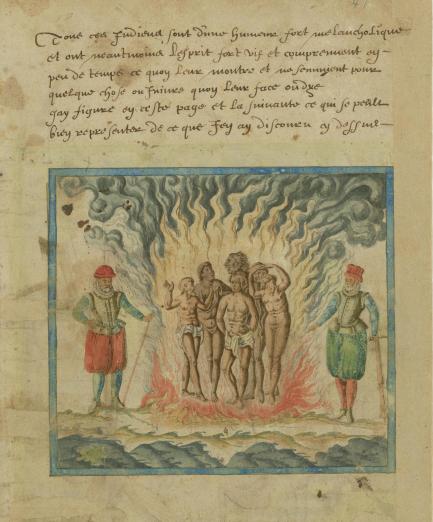 Tous ces Indiens sont d'une humeur fort melancholique
et ont neantmoins l'esprit fort vif et comprennent en
peu de temps ce quoy leur montre et ne sennuient pour
quelque chose ou faivre quoy leur face
gay figuré en ceste page et la suivante ce qui se peult
bien representer de ce que Jey ay discouru cy dessus